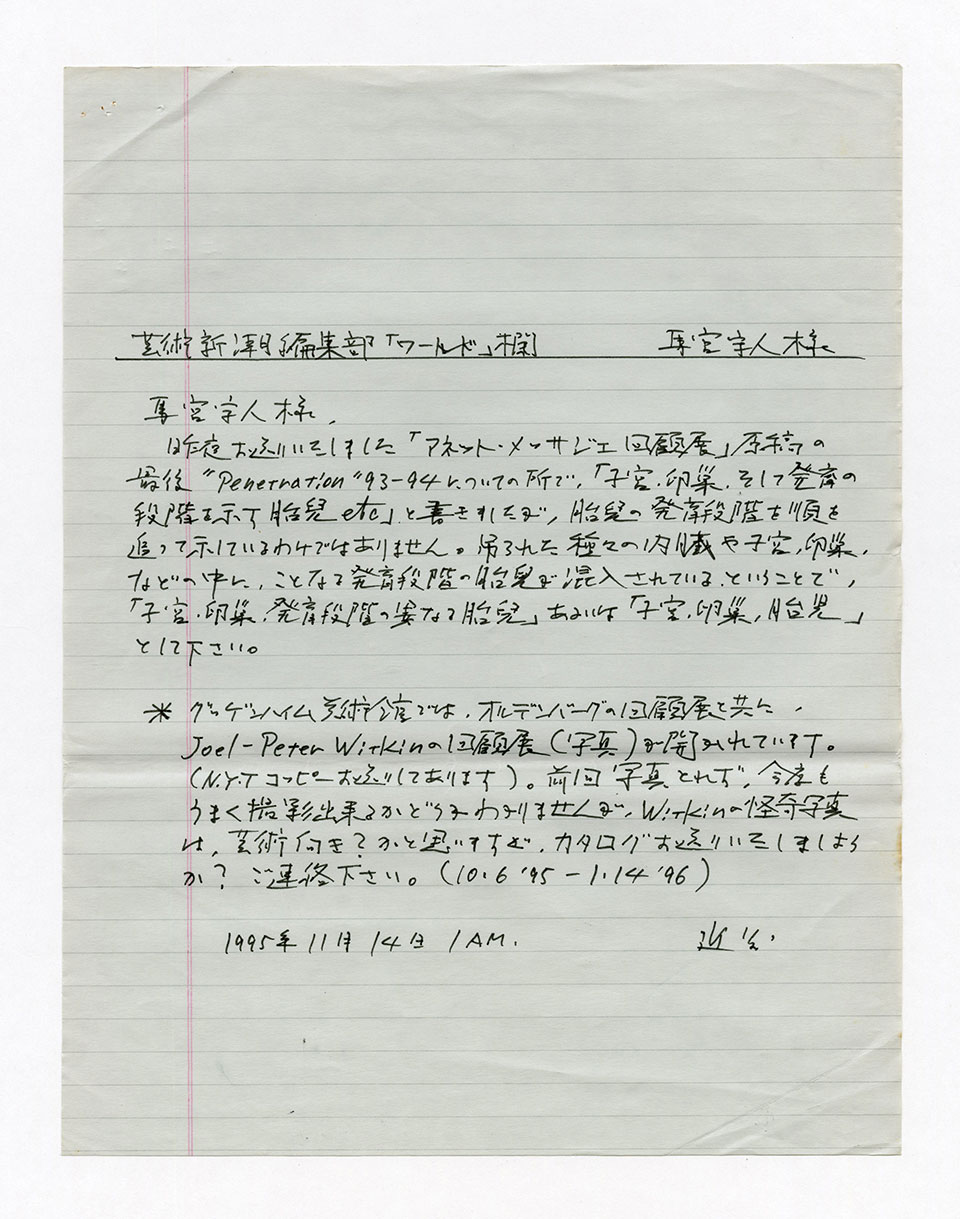 芸術新潮編集部「ワールド」欄 馬宮宇人様
馬宮宇人様,
昨夜お送りいたしました「アネット・メッサジェ回顧展」原稿の
最後 "Penetration" 93-94についての所で,「子宮.卵巣.そして発育の
段階を示す胎児etc」と書きましたが,胎児の発育段階を順を
追って示しているわけではありません。吊られた種々の内臓や子宮,卵巣,
などの中に,ことなる発育段階の胎児が混入されている,ということで,
「子宮.卵巣.発育段階の異なる胎児」あるいは「子宮.卵巣,胎児」
として下さい。
* グッゲンハイム美術館では,オルデンバーグの回顧展と共に,
Joel-Peter Witkinの回顧展(写真)が開かれています。
(N.Y.Tコッピーお送りしてあります)。前回写真とれず,今度も
うまく撮影出来るかどうかわかりませんが,Witkinの怪奇写真
は,芸術向き?かと思いますが,カタログお送りいたしましょう
か? ご連絡下さい。(10.6 '95 - 1.14 '96)
1995年11月14日 1AM.